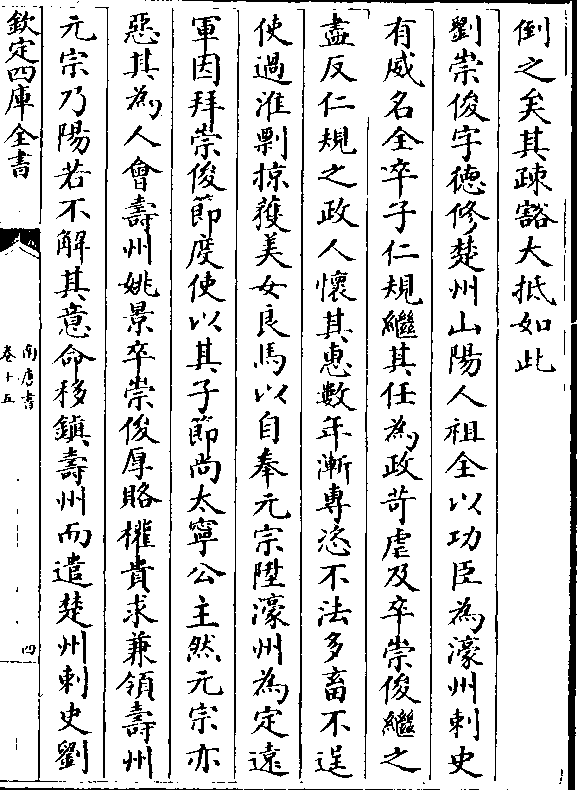 倒之矣其疎豁大抵如此
劉崇俊字德修楚州山陽人祖全以功臣為濠州刺史
有威名全卒子仁規繼其任為政苛虐及卒崇俊繼之
盡反仁規之政人懷其惠數年漸專恣不法多畜不逞
使過淮剽掠獲美女良馬以自奉元宗陞濠州為定遠
軍因拜崇俊節度使以其子節尚太寧公主然元宗亦
惡其為人會壽州姚景卒崇俊厚賂權貴求兼領壽州
元宗乃陽若不解其意命移鎮壽州而遣楚州刺史劉
欽定四庫全書
南唐書
卷十五
四